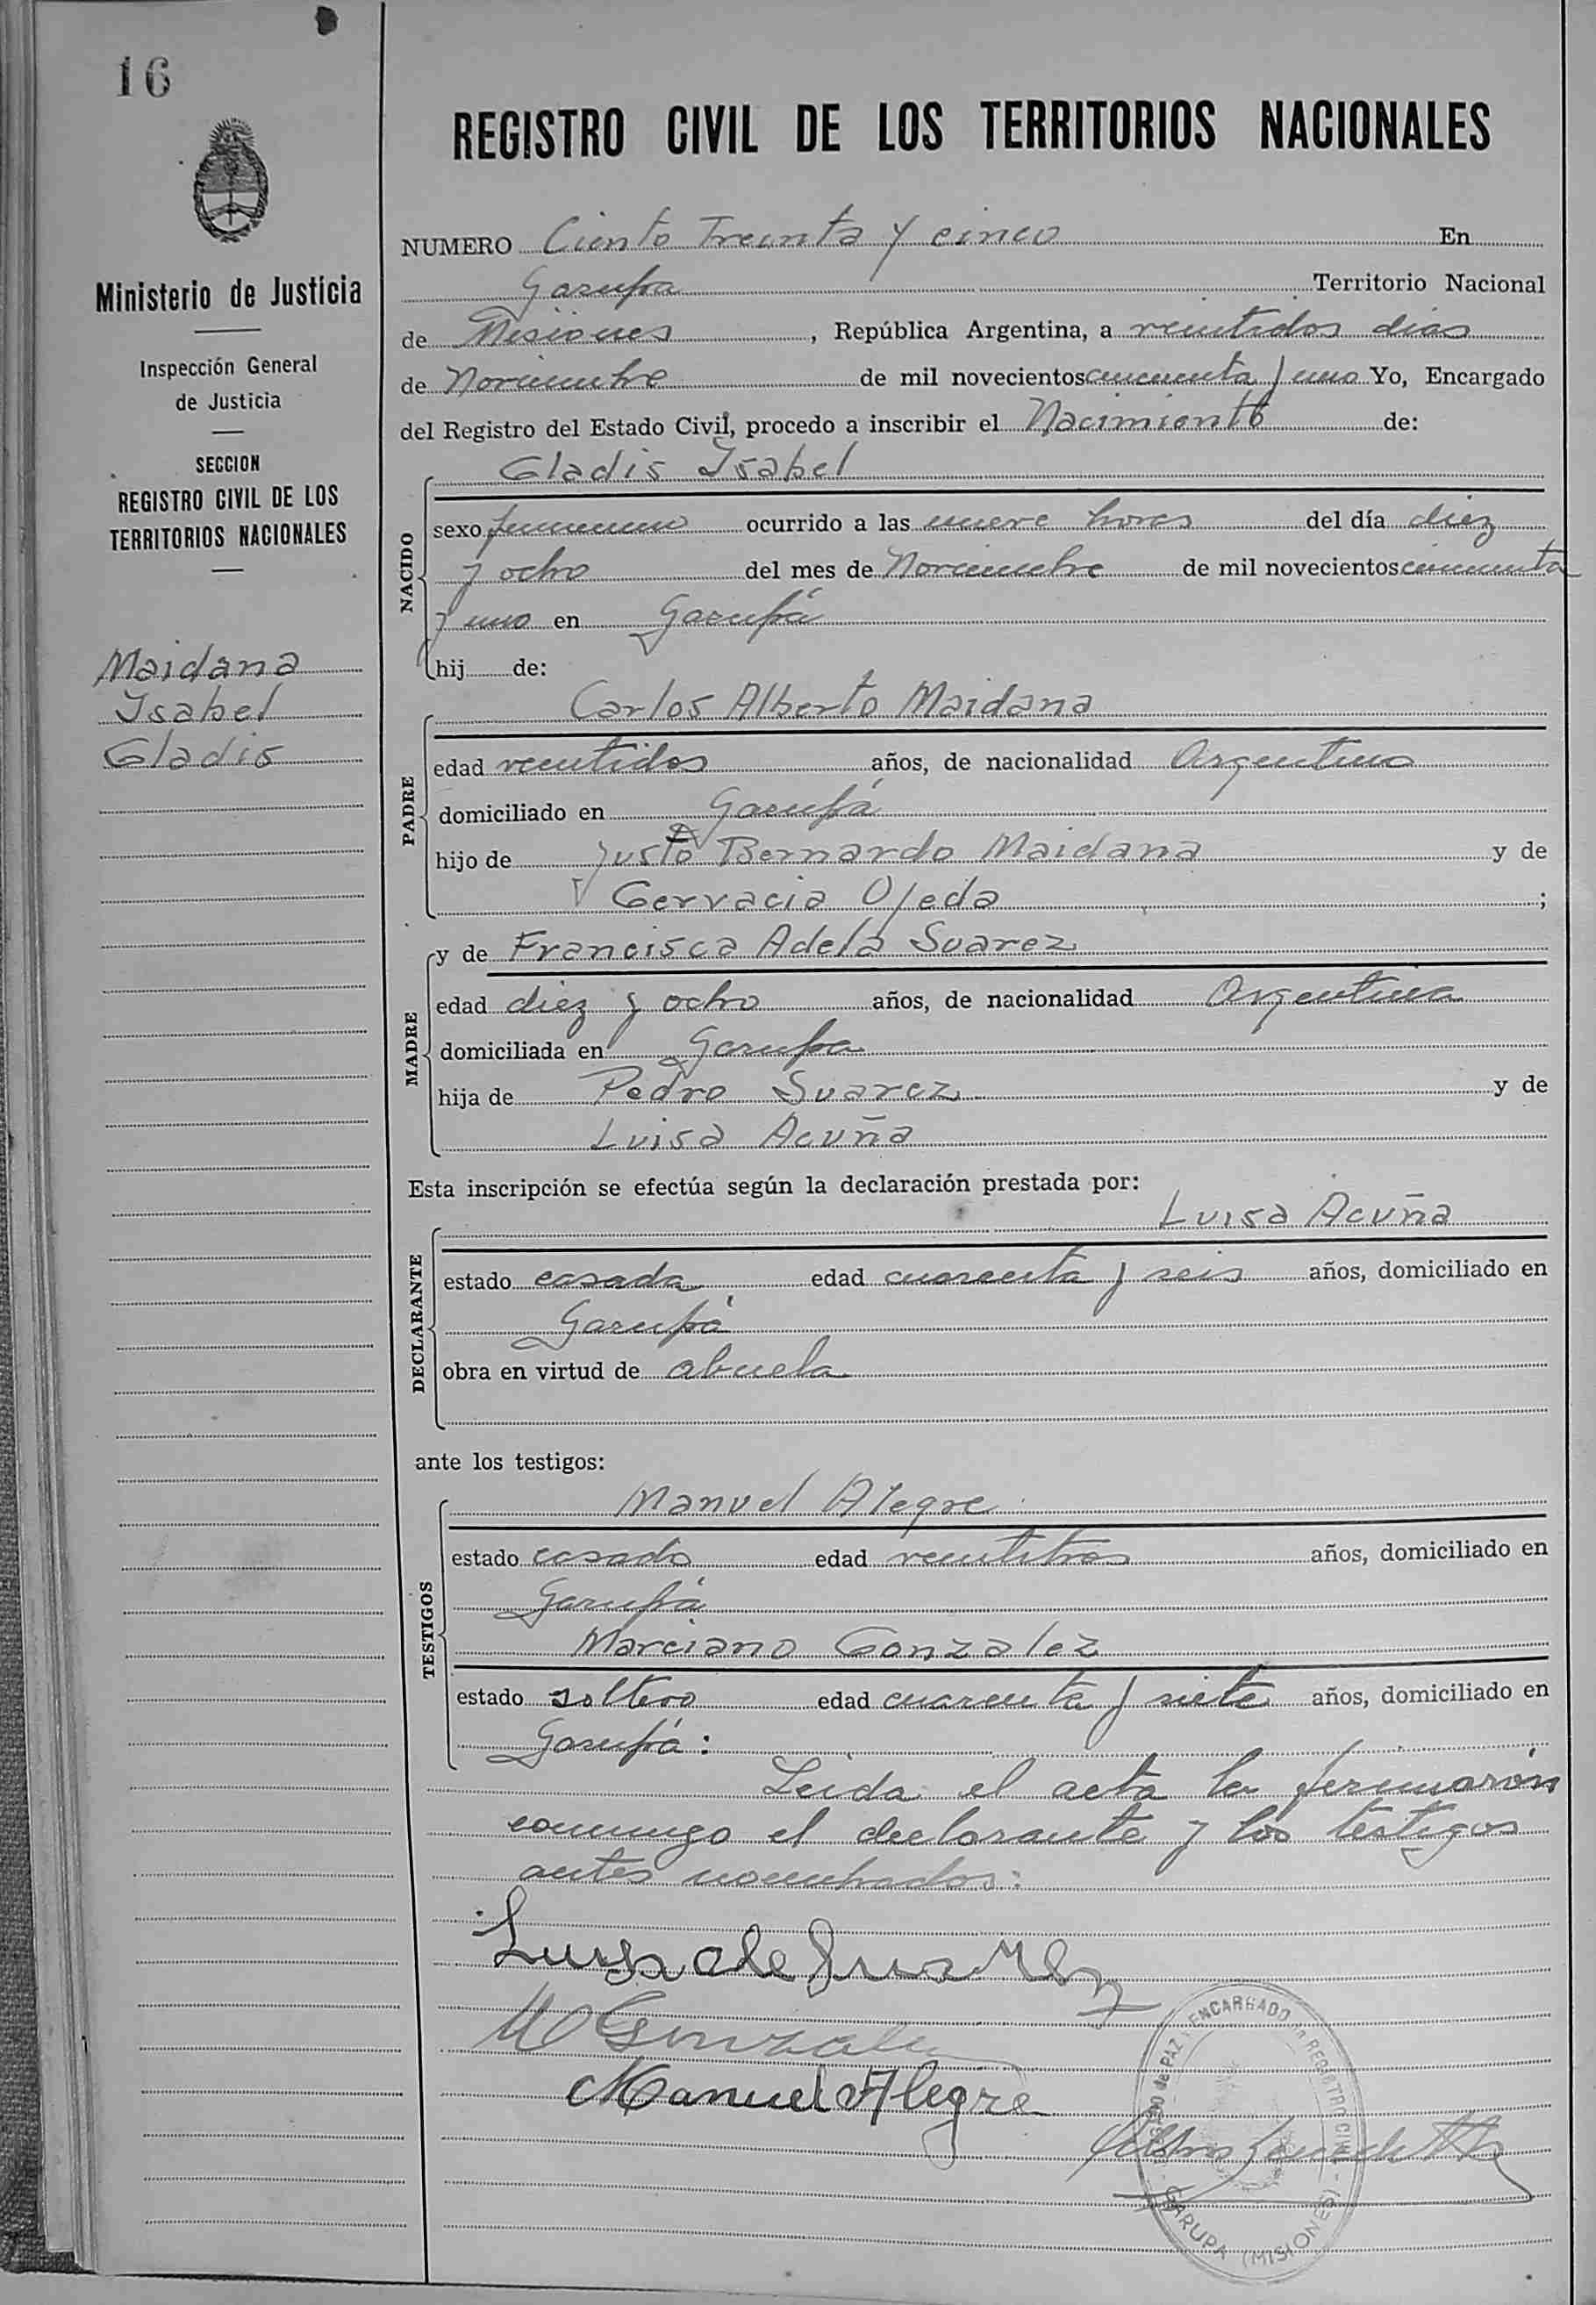 16
Ministerio de Justicia
Inspección General
de Justicia
SECCION
REGISTRO CIVIL DE LOS
TERRITORIOS NACIONALES
Maidana
Isabel
Gladis
REGISTRO CIVIL DE LOS TERRITORIOS NACIONALES
NUMERO Ciento Treinta y cinco En
Garupa Territorio Nacional
de Misiones, República Argentina, a veintidos dias
de Noviembre de mil novecientos cincuenta y uno Yo, Encargado
del Registro del Estado Civil, procedo a inscribir el Nacimiento de:
Gladis Isabel
NACIDO
sexo femenino ocurrido a las nueve horas del día diez
y ocho del mes de Noviembre de mil novecientos cincuenta
y uno en Garupá
hij de:
Carlos Alberto Maidana
PADRE
edad veintidos años, de nacionalidad Argentino
domiciliado en Garupá
hijo de Justo Bernardo Maidana y de
Gervacia Ojeda ;
MADRE
y de Francisca Adela Suarez
edad diez y ocho años, de nacionalidad Argentina
domiciliada en Garupa
hija de Pedro Suarez y de
Luisa Acuña
Esta inscripción se efectúa según la declaración prestada por:
Luisa Acuña
DECLARANTE
estado casada edad cuarenta y seis años, domiciliado en
Garupá
obra en virtud de abuela
ante los testigos:
Manuel Alegre
TESTIGOS
estado casado edad veintitres años, domiciliado en
Garupá
Marciano Gonzalez
estado soltero edad cuarenta y siete años, domiciliado en
Garupá:
Leida el acta la firmarón
conmigo el declarante y los testigos
antes nombrados:
Luisa A de Suarez
M Gonzalez
Manuel Alegre
JUZGADO de PAZ ENCARGADO REGISTRO CIVIL
GARUPA (MISIONES)